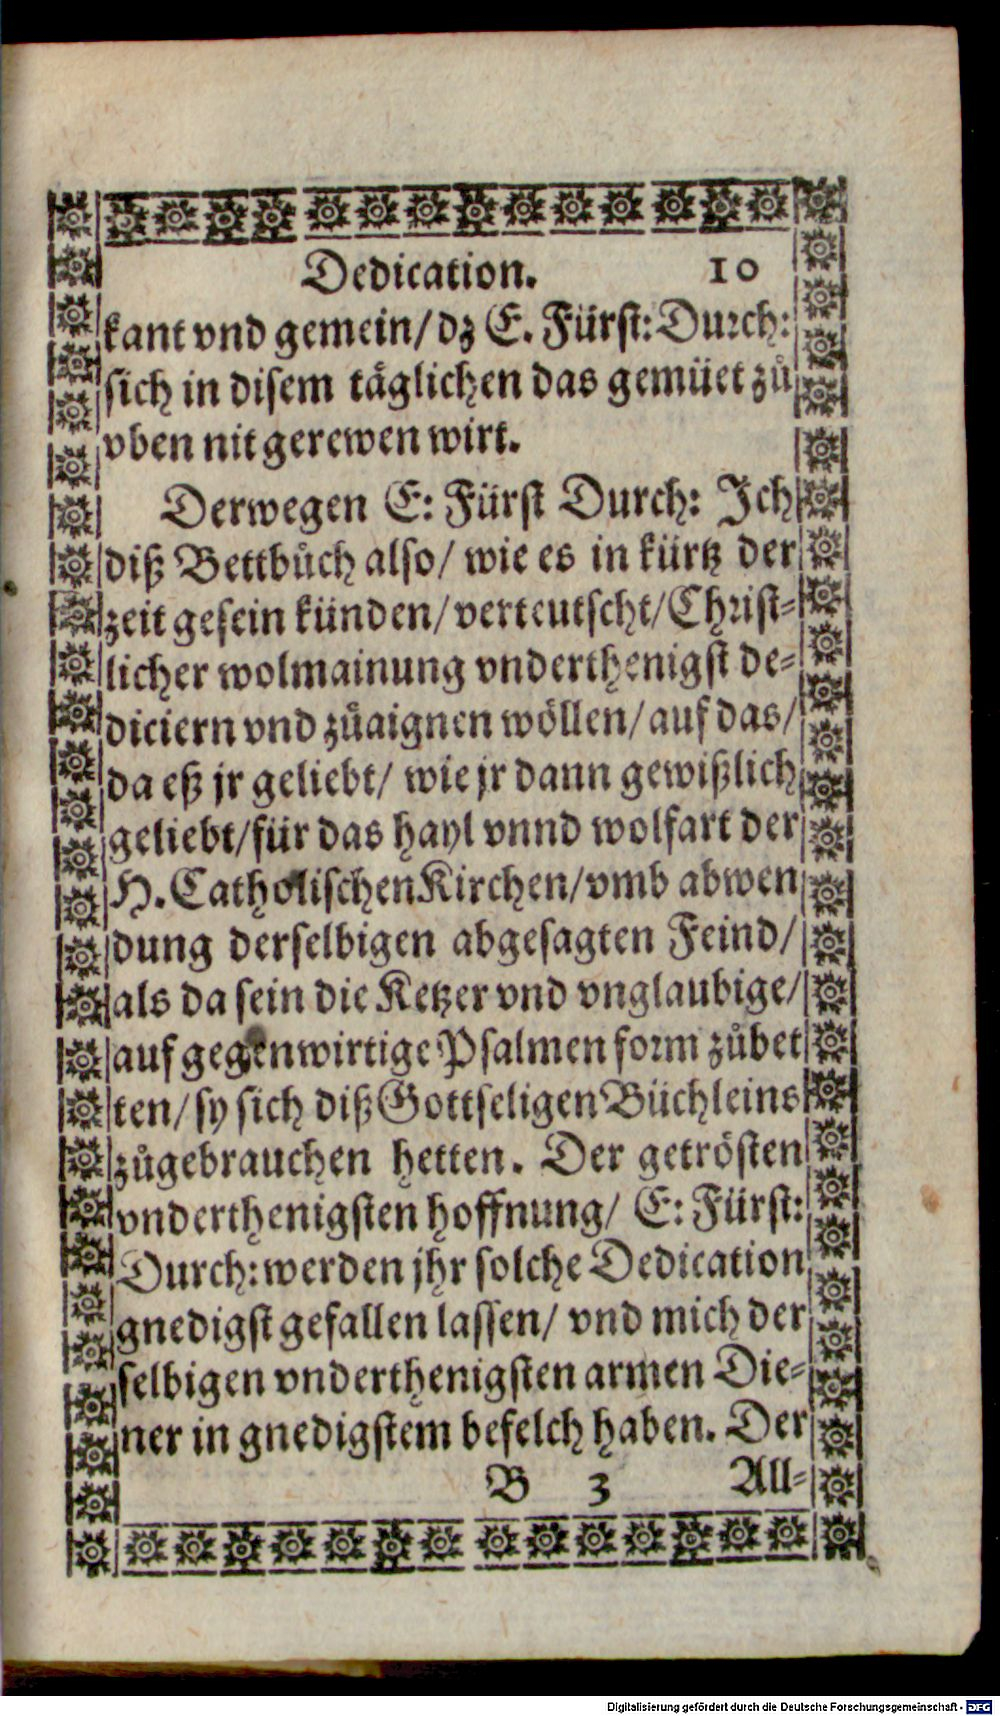 Dedication. 10
kant vnd gemein/ dz E. Fürst: Durch:
sich in disem täglichen das gemüet zů
vben nit gerewen wirt.
Derwegen E: Fürst Durch: Ich
diß Bettbůch also/ wie es in kürtz der
zeit gesein künden/ verteutscht/ Christ-
licher wolmainung vnderthenigst de-
diciern vnd zůaignen wöllen/ auf das/
da eß jr geliebt/ wie jr dann gewißlich
geliebt/ für das hayl vnnd wolfart der
H. Catholischen Kirchen/ vmb abwen
dung derselbigen abgesagten Feind/
als da sein die Ketzer vnd vnglaubige/
auf gegenwirtige Psalmen form zůbet
ten/ sy sich diß Gottseligen Büchleins
zůgebrauchen hetten. Der getrösten
vnderthenigsten hoffnung/ E: Fürst:
Durch: werden jhr solche Dedication
gnedigst gefallen lassen/ vnd mich der
selbigen vnderthenigsten armen Die-
ner in gnedigstem befelch haben. Der
B 3 All-
Digitalisierung gefördert durch die Deutsche Forschungsgemeinschaft - DFG